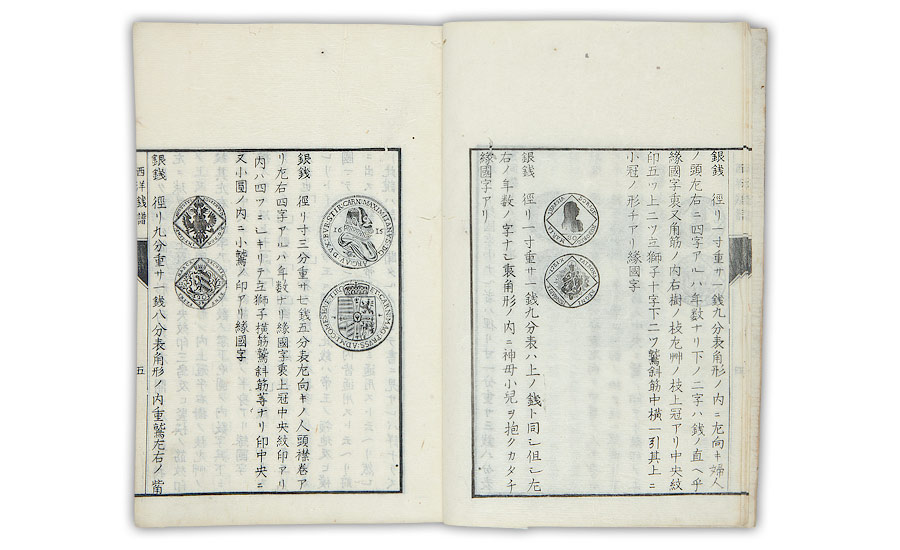 銀錢　徑リ一寸重サ一錢九分表角形ノ内ニ左向キ婦人
ノ頭左右ニ四字アルハ年数ナリ下ノ二字ハ錢ノ直ヘ乎
緣國字裏又角筋ノ内右樹ノ枝左艸ノ枝上冠アリ中央紋
印五ツ上二ツ立獅子十字下二ツ鷲斜筋中横一引其上ニ
小冠ノ形チアリ緣國字
銀錢　徑リ一寸重サ一錢九分表ハ上ノ錢ト同シ但シ左
右ノ年数ノ字ナシ裏角形ノ内ニ神母小兒ヲ抱クカタチ
緣國字アリ
1615
銀錢　徑リ寸三分重サ七錢五分表左向キノ人頭襟卷ア
リ左右四字アルハ年数ナリ緣國字裏上冠中央紋印アリ
内ハ四ツニ〆キリテ立獅子横筋鷲斜筋等ナリ印中央ニ
又小圓ノ内ニ小鷲ノ印アリ緣國字
銀錢　徑リ九分重サ一錢八分表角形ノ内重鷲左右ノ觜
西洋錢譜
五